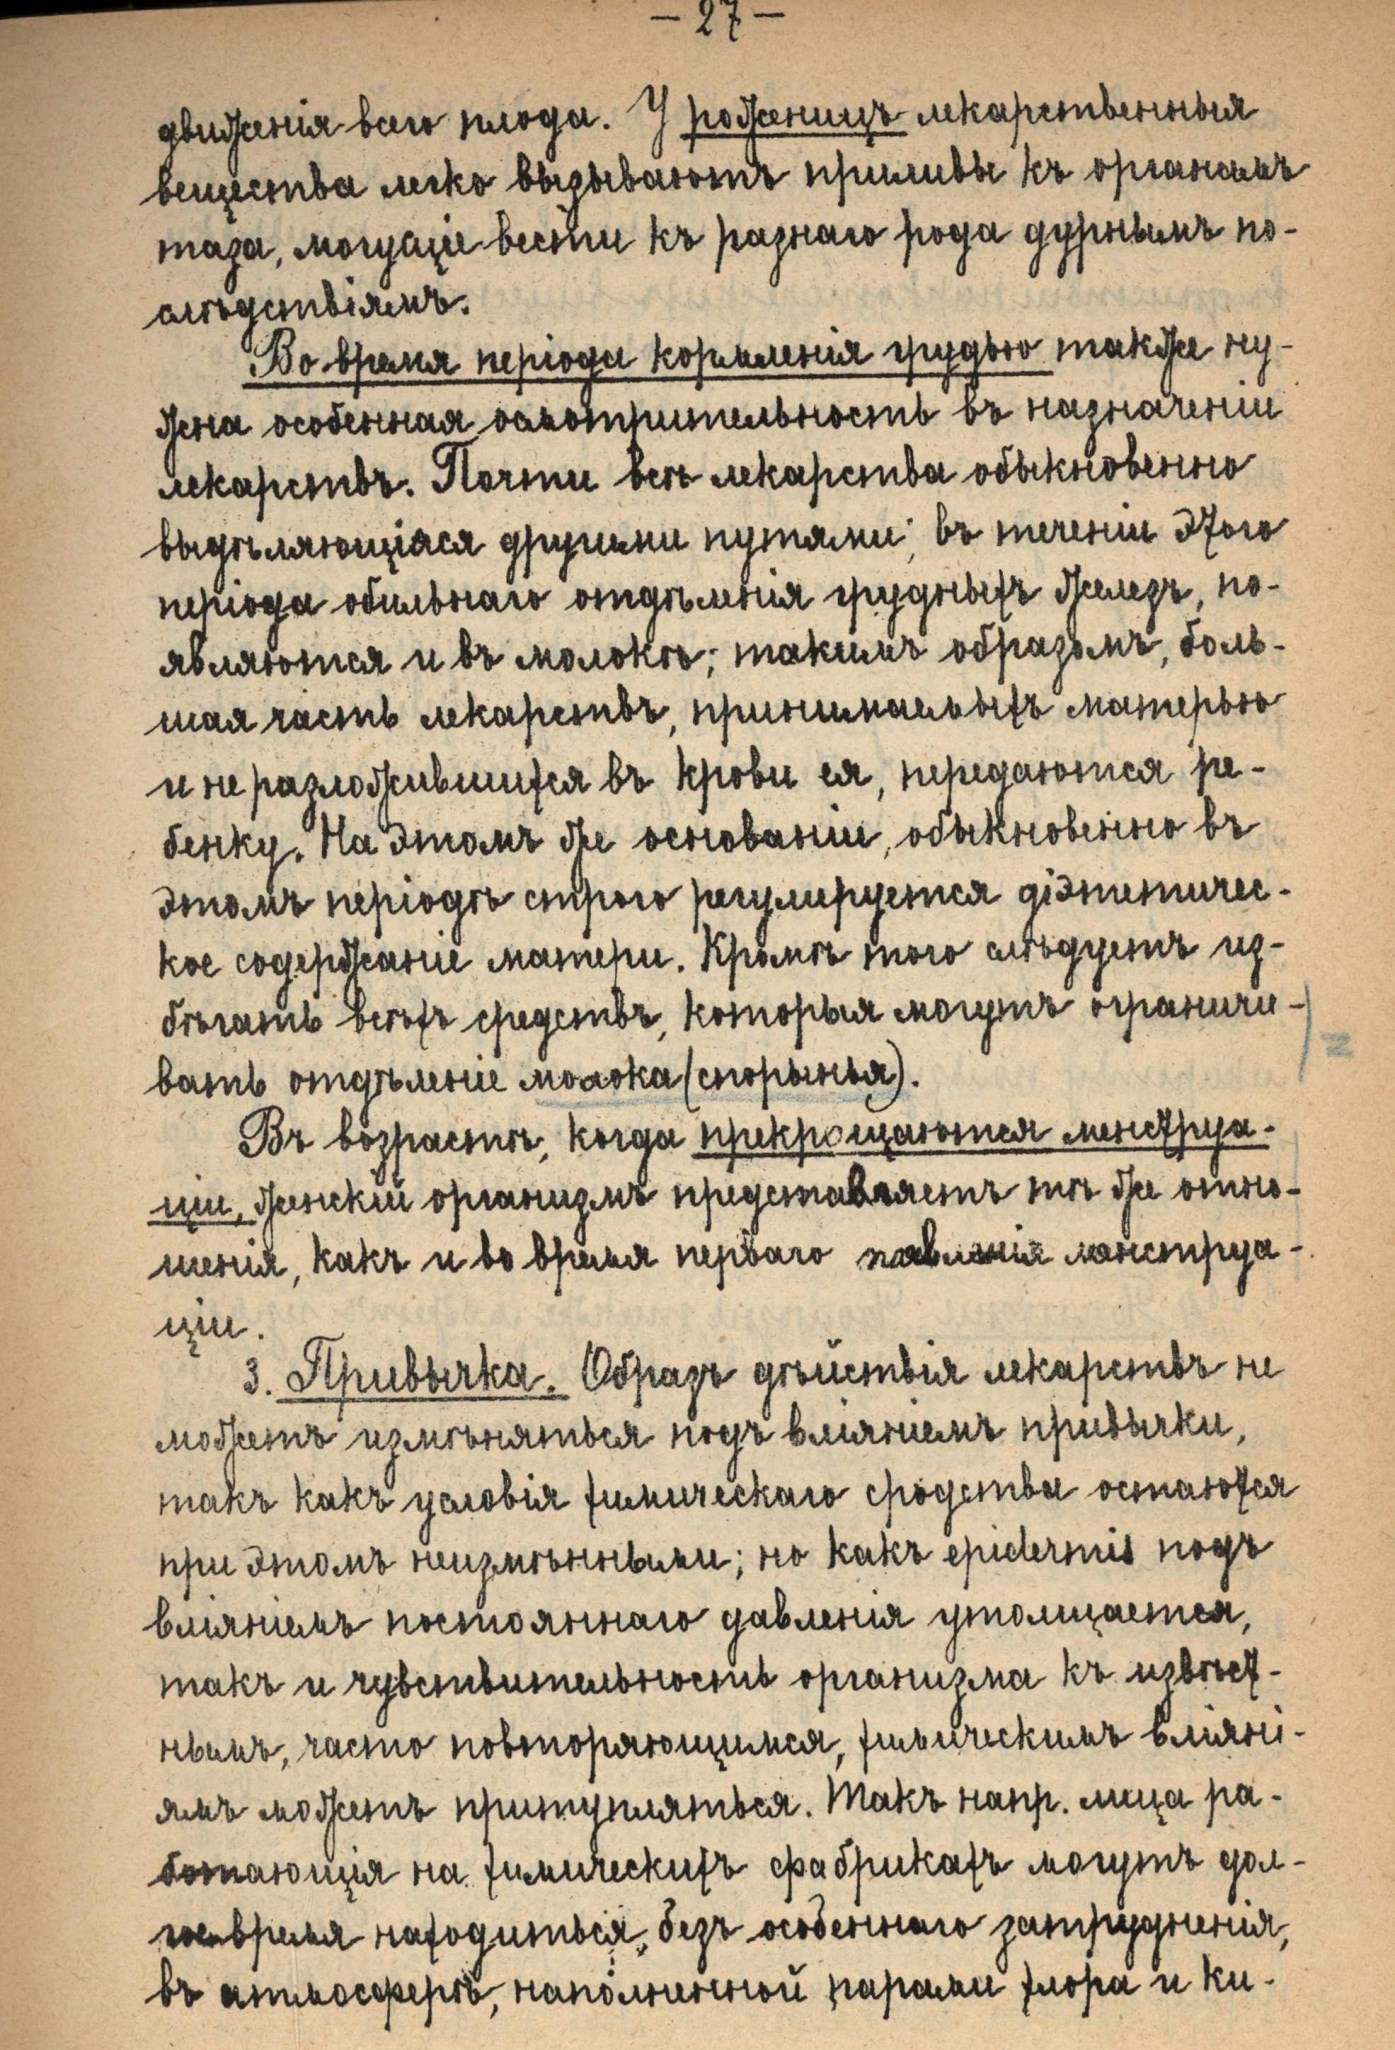 — 27 —
движенія всего плода. У роженицъ лекарственныя
вещества легко вызываютъ приливы къ органамъ
таза, могущіе вести къ разнаго рода дурнымъ по-
слѣдствіямъ.
Во время періода кормленія грудью также ну-
жна особенная осмотрительность въ назначеніи
лекарствъ. Почти всѣ лекарства обыкновенно
выдѣляющіяся другими путями, въ теченіи этого
періода обильнаго отдѣленія грудныхъ железъ, по-
являются и въ молокѣ; такимъ образомъ, боль-
шая часть лекарствъ, принимаемыхъ матерью
и не разложившихся въ крови ея, передаются ре-
бенку. На этомъ же основаніи, обыкновенно въ
этомъ періодѣ строго регулируется діэтетичес-
кое содержаніе матери. Кромѣ того слѣдуетъ из-
бѣгать всѣхъ средствъ, которыя могутъ ограничи-
вать отдѣленіе молока (спорынья).
N
Въ возрастѣ, когда прекрощаются менструа-
ціи, женскій организмъ представляетъ тѣ же отно-
шенія, какъ и во время перваго появленія менструа-
ціи.
3. Привычка. Образъ дѣйствія лекарствъ не
можетъ измѣняться подъ вліяніемъ привычки,
такъ какъ условія химическаго сродства остаются
при этомъ неизмѣнными; но какъ epidermis подъ
вліяніемъ постояннаго давленія утолщается,
такъ и чувствительность организма къ извѣст-
нымъ, часто повторяющимся, химическимъ вліяні-
ямъ можетъ притупляться. Такъ напр. лица ра-
ботающія на химическихъ фабрикахъ могутъ дол-
гое время находиться, безъ особеннаго затрудненія,
въ атмосферѣ, наполненной парами хлора и ки-